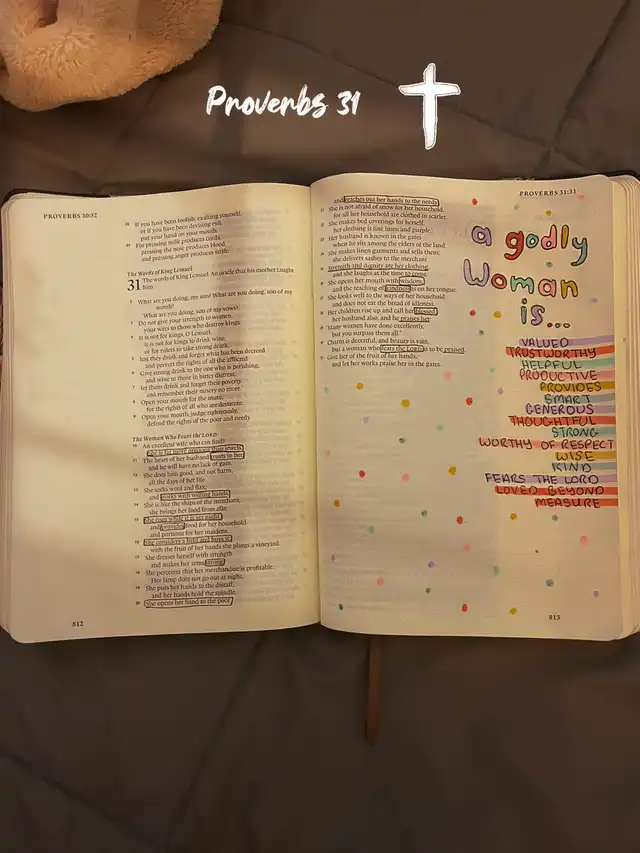 Proverbs 31
PROVERBS 30:32
32 If you have been foolish, exalting yourself,
or if you have been devising evil,
put your hand on your mouth.
33 For pressing milk produces curds,
pressing the nose produces blood,
and pressing anger produces strife.
The Words of King Lemuel
31 The words of King Lemuel. An oracle that his mother taught
him:
2 What are you doing, my son? What are you doing, son of my
womb?
What are you doing, son of my vows?
3 Do not give your strength to women,
your ways to those who destroy kings.
4 It is not for kings, O Lemuel,
it is not for kings to drink wine,
or for rulers to take strong drink,
5 lest they drink and forget what has been decreed
and pervert the rights of all the afflicted.
6 Give strong drink to the one who is perishing,
and wine to those in bitter distress;
7 let them drink and forget their poverty
and remember their misery no more.
8 Open your mouth for the mute,
for the rights of all who are destitute.
9 Open your mouth, judge righteously,
defend the rights of the poor and needy.
The Woman Who Fears the LORD
10 An excellent wife who can find?
She is far more precious than jewels.
11 The heart of her husband trusts in her,
and he will have no lack of gain.
12 She does him good, and not harm,
all the days of her life.
13 She seeks wool and flax,
and works with willing hands.
14 She is like the ships of the merchant;
she brings her food from afar.
15 She rises while it is yet night
and provides food for her household
and portions for her maidens.
16 She considers a field and buys it;
with the fruit of her hands she plants a vineyard.
17 She dresses herself with strength
and makes her arms strong.
18 She perceives that her merchandise is profitable.
Her lamp does not go out at night.
19 She puts her hands to the distaff,
and her hands hold the spindle.
20 She opens her hand to the poor
812
PROVERBS 31:31
and reaches out her hands to the needy.
21 She is not afraid of snow for her household,
for all her household are clothed in scarlet.
22 She makes bed coverings for herself;
her clothing is fine linen and purple.
23 Her husband is known in the gates
when he sits among the elders of the land.
24 She makes linen garments and sells them;
she delivers sashes to the merchant.
25 Strength and dignity are her clothing,
and she laughs at the time to come.
26 She opens her mouth with wisdom,
and the teaching of kindness is on her tongue.
27 She looks well to the ways of her household
and does not eat the bread of idleness.
28 Her children rise up and call her blessed;
her husband also, and he praises her:
29 "Many women have done excellently,
but you surpass them all."
30 Charm is deceitful, and beauty is vain,
but a woman who fears the LORD is to be praised.
31 Give her of the fruit of her hands,
and let her works praise her in the gates.
a godly
Woman
is...
VALUED
TRUSTWORTHY
HELPFUL
PRODUCTIVE
PROVIDES
SMART
GENEROUS
THOUGHTFUL
STRONG
WORTHY OF RESPECT
WISE
KIND
FEARS THE LORD
LOVED BEYOND
MEASURE
813